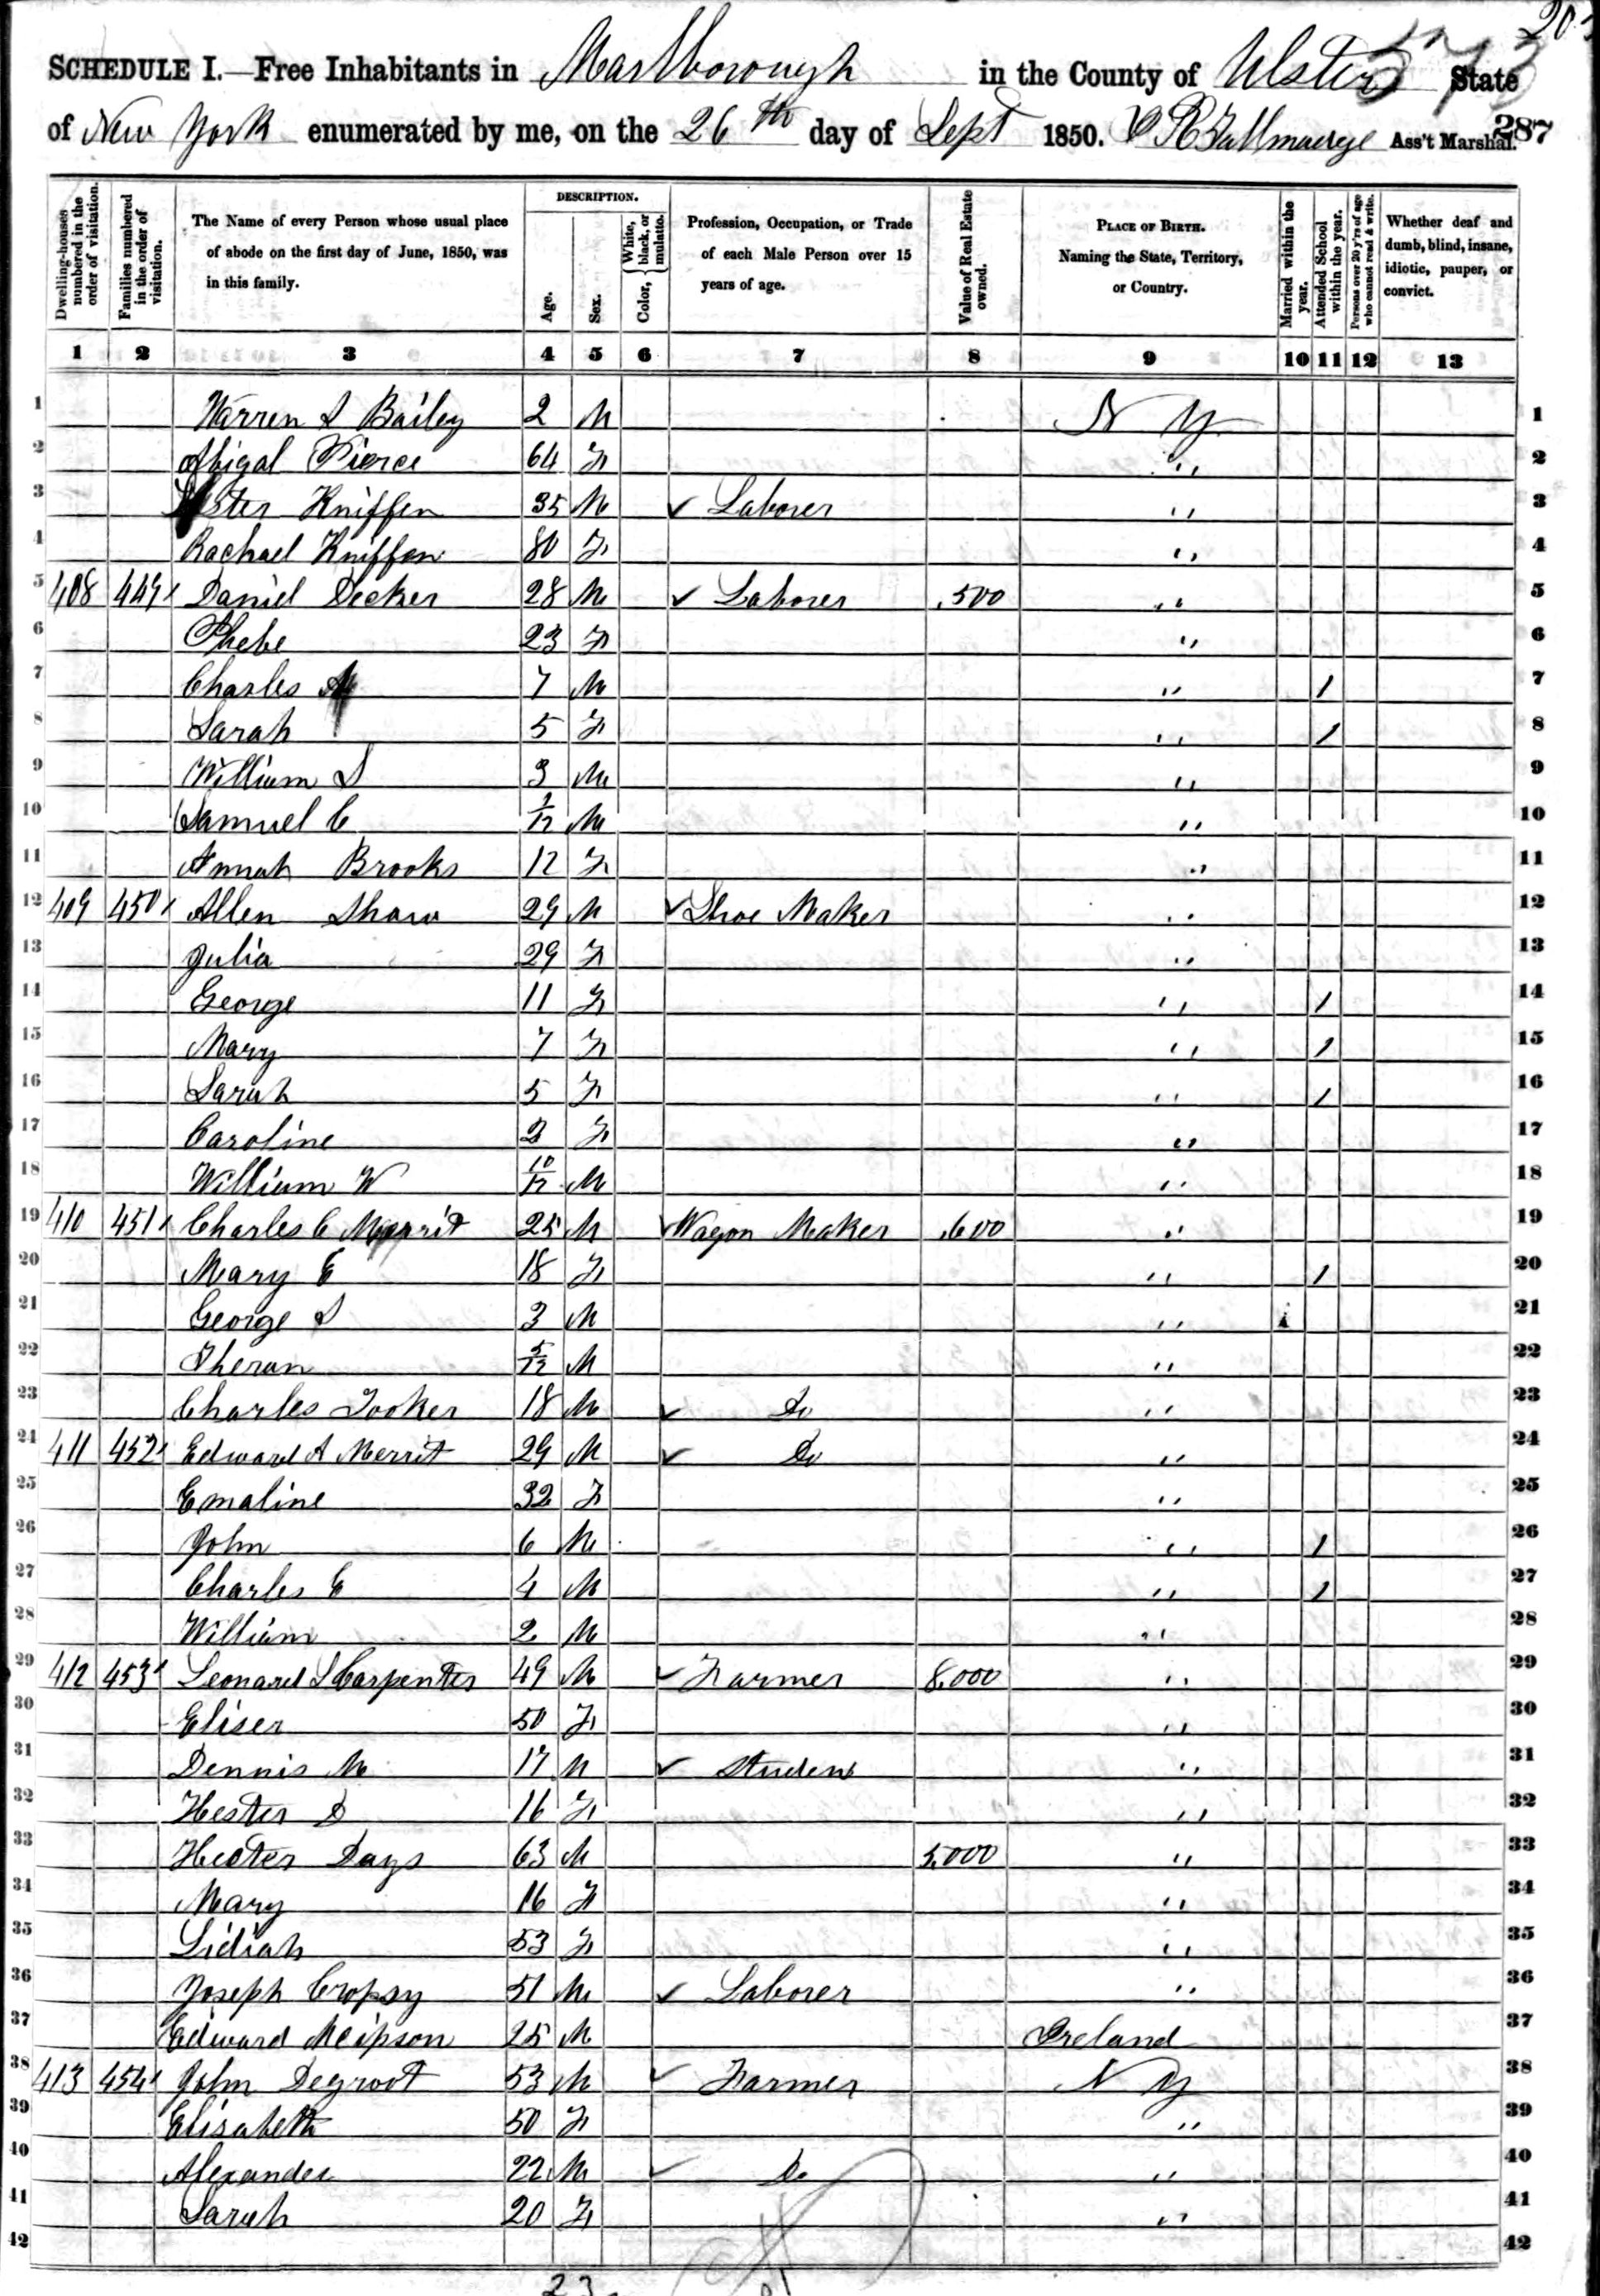 SCHEDULE I.—Free Inhabitants in Marlborough in the County of Ulster State
of New York enumerated by me, on the 26th day of Sept 1850. Ass't Marshal.
287
Dwelling-houses numbered in the order of visitation.
Families numbered in the order of visitation.
The Name of every Person whose usual place of abode on the first day of June, 1850, was in this family.
DESCRIPTION.
Age.
Sex.
Color, { White, black, or mulatto.
Profession, Occupation, or Trade of each Male Person over 15 years of age.
Value of Real Estate owned.
PLACE OF BIRTH. Naming the State, Territory, or Country.
Married within the year.
Attended School within the year.
Persons over 20 y'rs of age who cannot read & write.
Whether deaf and dumb, blind, insane, idiotic, pauper, or convict.
1 2 3 4 5 6 7 8 9 10 11 12 13
1 Warren S Bailey 2 M N Y 1
2 Abigal Pierce 64 F " 2
3 Kniffen 35 M ✓ Laborer " 3
4 Rachael Kniffen 80 F " 4
5 408 449 Daniel Decker 28 M ✓ Laborer 500 " 5
6 Phebe 23 F " 6
7 Charles 7 M " 1 7
8 Sarah 5 F " 1 8
9 William S 3 M " 9
10 Samuel C M " 10
11 Annah Brooks 12 F " 11
12 409 450 Allen Shaw 29 M ✓ Shoe Maker " 12
13 Julia 29 F " 13
14 George 11 F " 1 14
15 Mary 7 F " 1 15
16 Sarah 5 F " 1 16
17 Caroline F " 17
18 William W 10/12 M " 18
19 410 451 Charles C Merrit 25 M ✓ Wagon Maker 600 " 19
20 Mary E 18 F " 1 20
21 George S 3 M " 21
22 Theran 5/12 M " 22
23 Charles Tooker 18 M ✓ Do " 23
24 411 452 Edward A Merrit 29 M ✓ Do " 24
25 Emaline 32 F " 25
26 John 6 M " 1 26
27 Charles E 4 M " 1 27
28 William 2 M " 28
29 412 453 Leonard S Carpenter 49 M ✓ Farmer 8,000 " 29
30 Eliser 50 F " 30
31 Dennis M 17 M ✓ Student " 31
32 Hester D 16 F " 32
33 Hecter Days 63 M 5,000 " 33
34 Mary 16 F " 34
35 Lidiah 53 F " 35
36 Joseph Cropsy 51 M ✓ Laborer " 36
37 Edward 25 M Ireland 37
38 413 454 John Degroot 53 M ✓ Farmer N Y 38
39 Elisabeth 50 F " 39
40 Alexander 22 M ✓ Do " 40
41 Sarah 20 F " 41
42 42